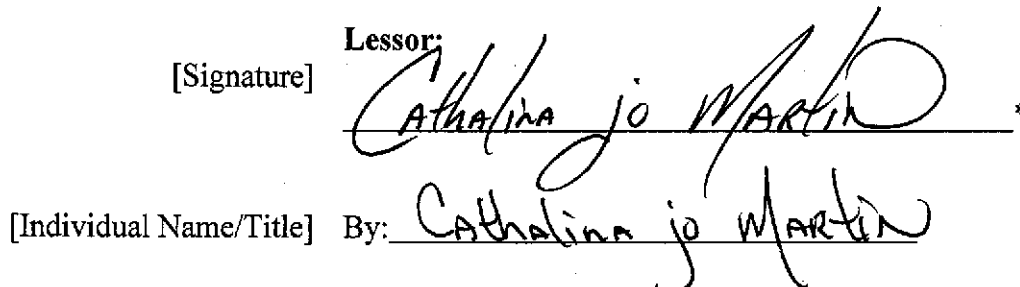 Lessor:
[Signature] Cathalina jo Martin *
[Individual Name/Title] By: Cathalina jo Martin